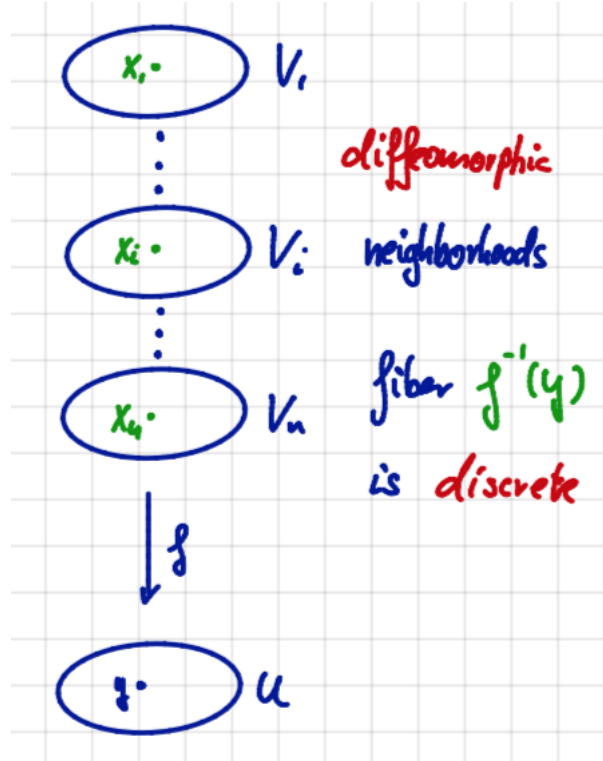 x₁ V₁
diffeomorphic
xᵢ Vᵢ neighborhoods
fiber f⁻¹(y)
xₙ Vₙ
is discrete
f
y U